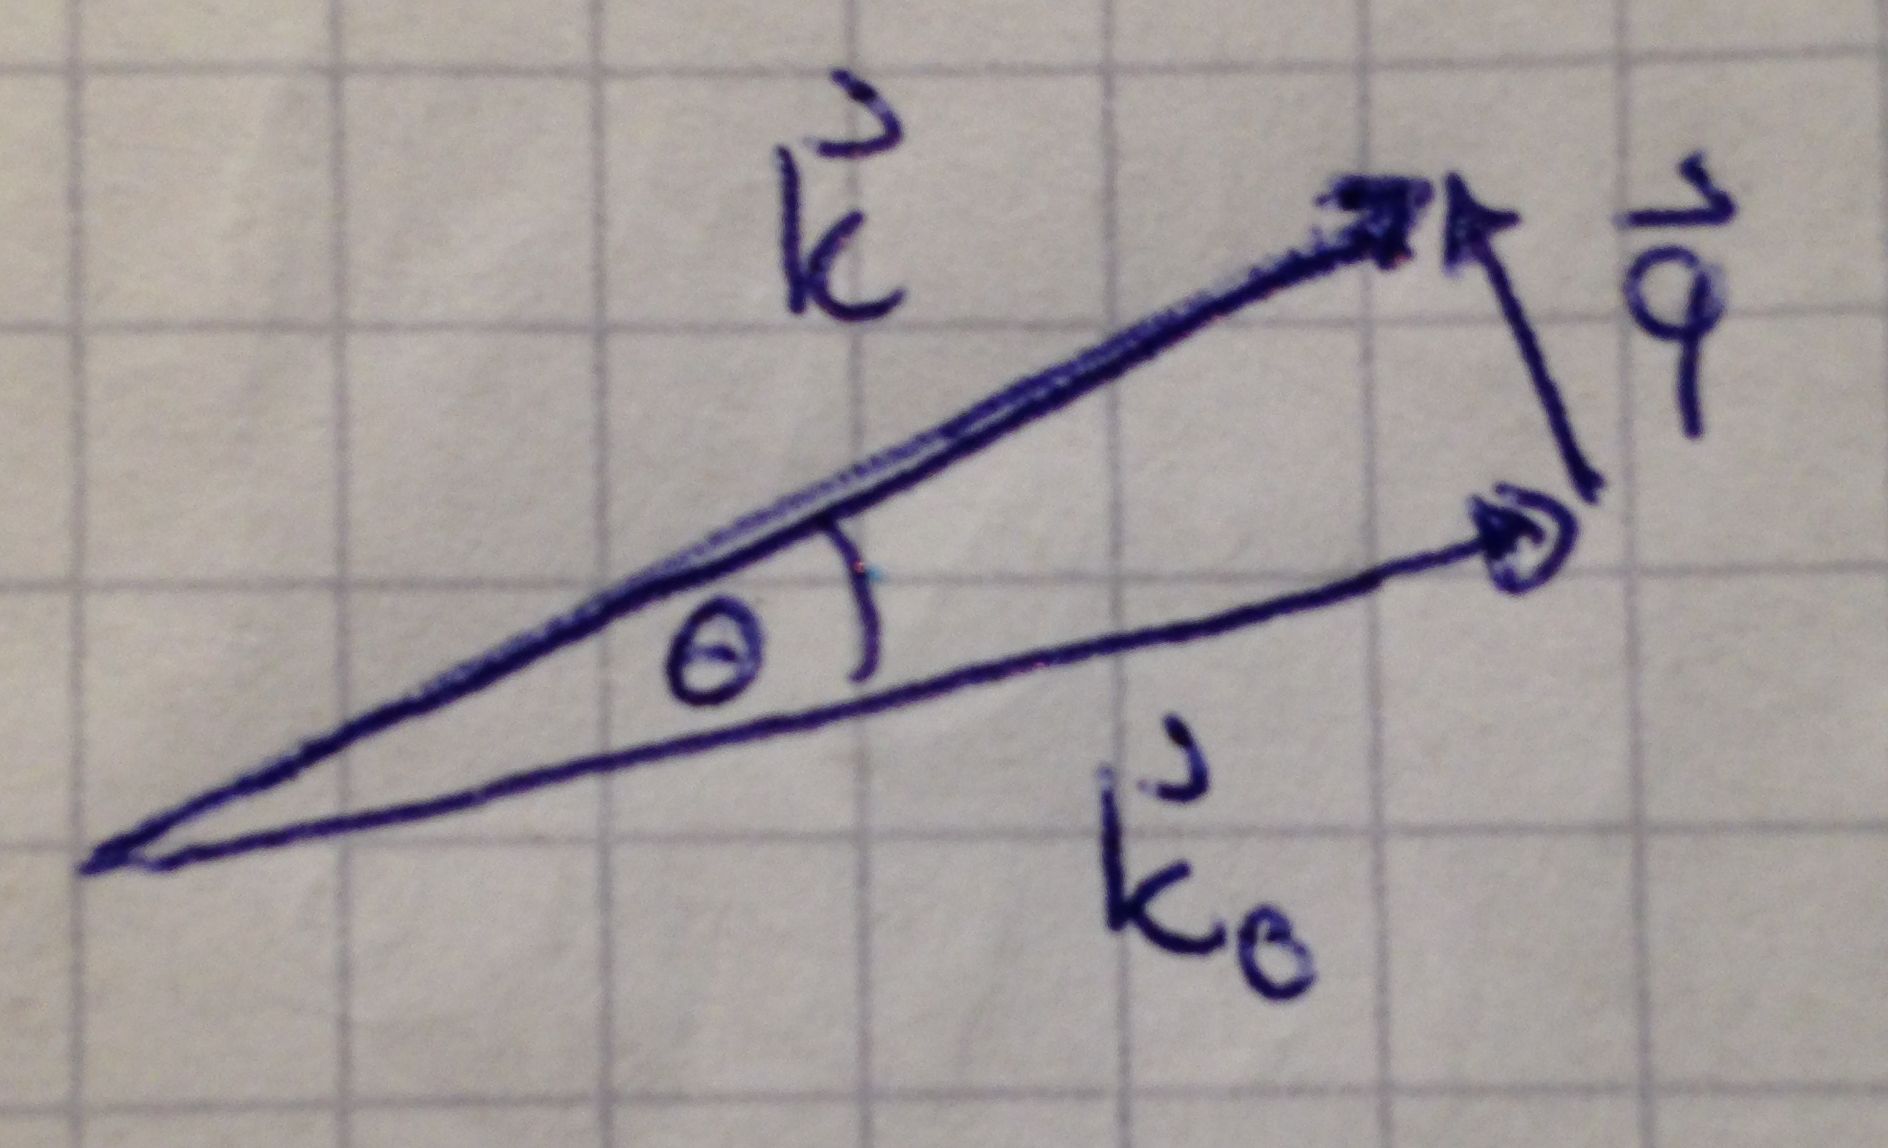 k⃗
q⃗
θ
k⃗₀